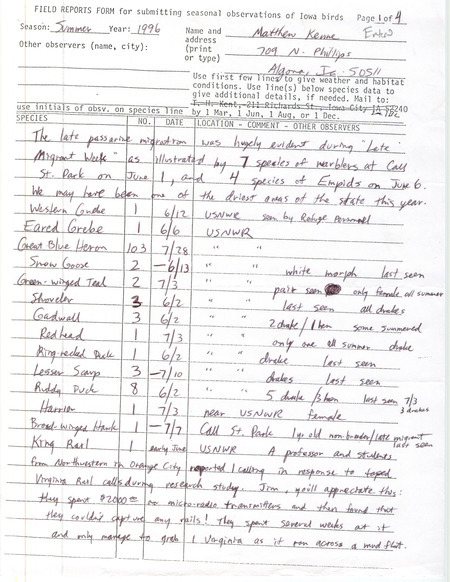 FIELD REPORTS FORM for submitting seasonal observations of Iowa birds Page 1 of 4
Season: Summer Year: 1996 Name and Matthew Kenne
address
Other observers (name, city): (print 709 N. Phillips
or type)
Algona, Ia. 50511
Use first few lines to give weather and habitat
conditions. Use line(s) below species data to
give additional details, if needed. Mail to:
T. H. Kent, 211 Richards St., Iowa City IA 52240
use initials of obsv. on species line by 1 Mar, 1 Jun, 1 Aug, or 1 Dec.
SPECIES NO. DATE LOCATION - COMMENT - OTHER OBSERVERS
The late passerine migration was hugely evident during "Late
Migrant Week" as illustrated by 7 species of warblers at Call
St. Park on June 1, and 4 species of Empids on June 6.
We may have been one of the driest areas of the state this year.
Western Grebe 1 6/12 USNWR seen by Refuge Personnel
Eared Grebe 1 6/6 USNWR
Great Blue Heron 103 7/28 " "
Snow Goose 2 -6/13 " " white morph last seen
Green-winged Teal 2 7/3 " " pair seen only female all summer
Shoveler 3 6/2 " " last seen all drakes
Gadwall 3 6/2 " " 2 drake/1 hen some summered
Redhead 1 7/3 " " only one all summer drake
Ring-necked Duck 1 6/2 " " drake last seen
Lesser Scaup 3 -7/10 " " drakes last seen
Ruddy Duck 8 6/2 " " 5 drake/3 hen last seen 7/3
3 drakes
Harrier 1 7/3 near USNWR female
Broad-winged Hawk 1 -7/7 Call St. Park 1 yr. old non breeder/late migrant
last seen
King Rail 1 early June USNWR A professor and students
from Northwestern in Orange City reported 1 calling in response to taped
Virginia Rail calls during research study. Jim, you'll appreciate this:
they spent $2000 on micro-radio transmitters and then found that
they couldn't capture any rails! They spent several weeks at it
and only manage to grab 1 Virginia as it ran across a mud flat.